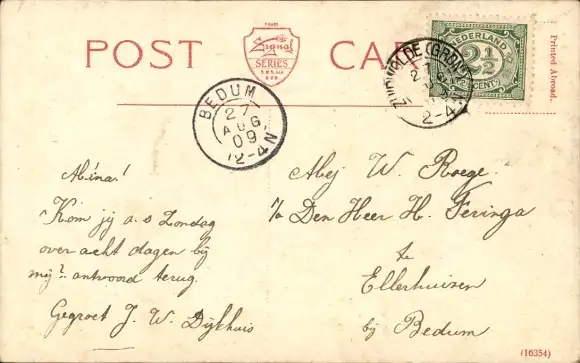 POST CARD
TRADE
Signal
SERIES
NEDERLAND
2½
CENT
Printed Abroad.
ZUIDWOLDE (GRON)
2-4N
BEDUM
27
AUG
09
12-4N
Mej W. Roege.
p/a Den Heer H. Feringa
te
Ellerhuizen
bij Bedum
Abina!
Kom jij a.s Zondag
over acht dagen bij
mij? antwoord terug.
Gegroet J. W. Dijkhuis
(16354)